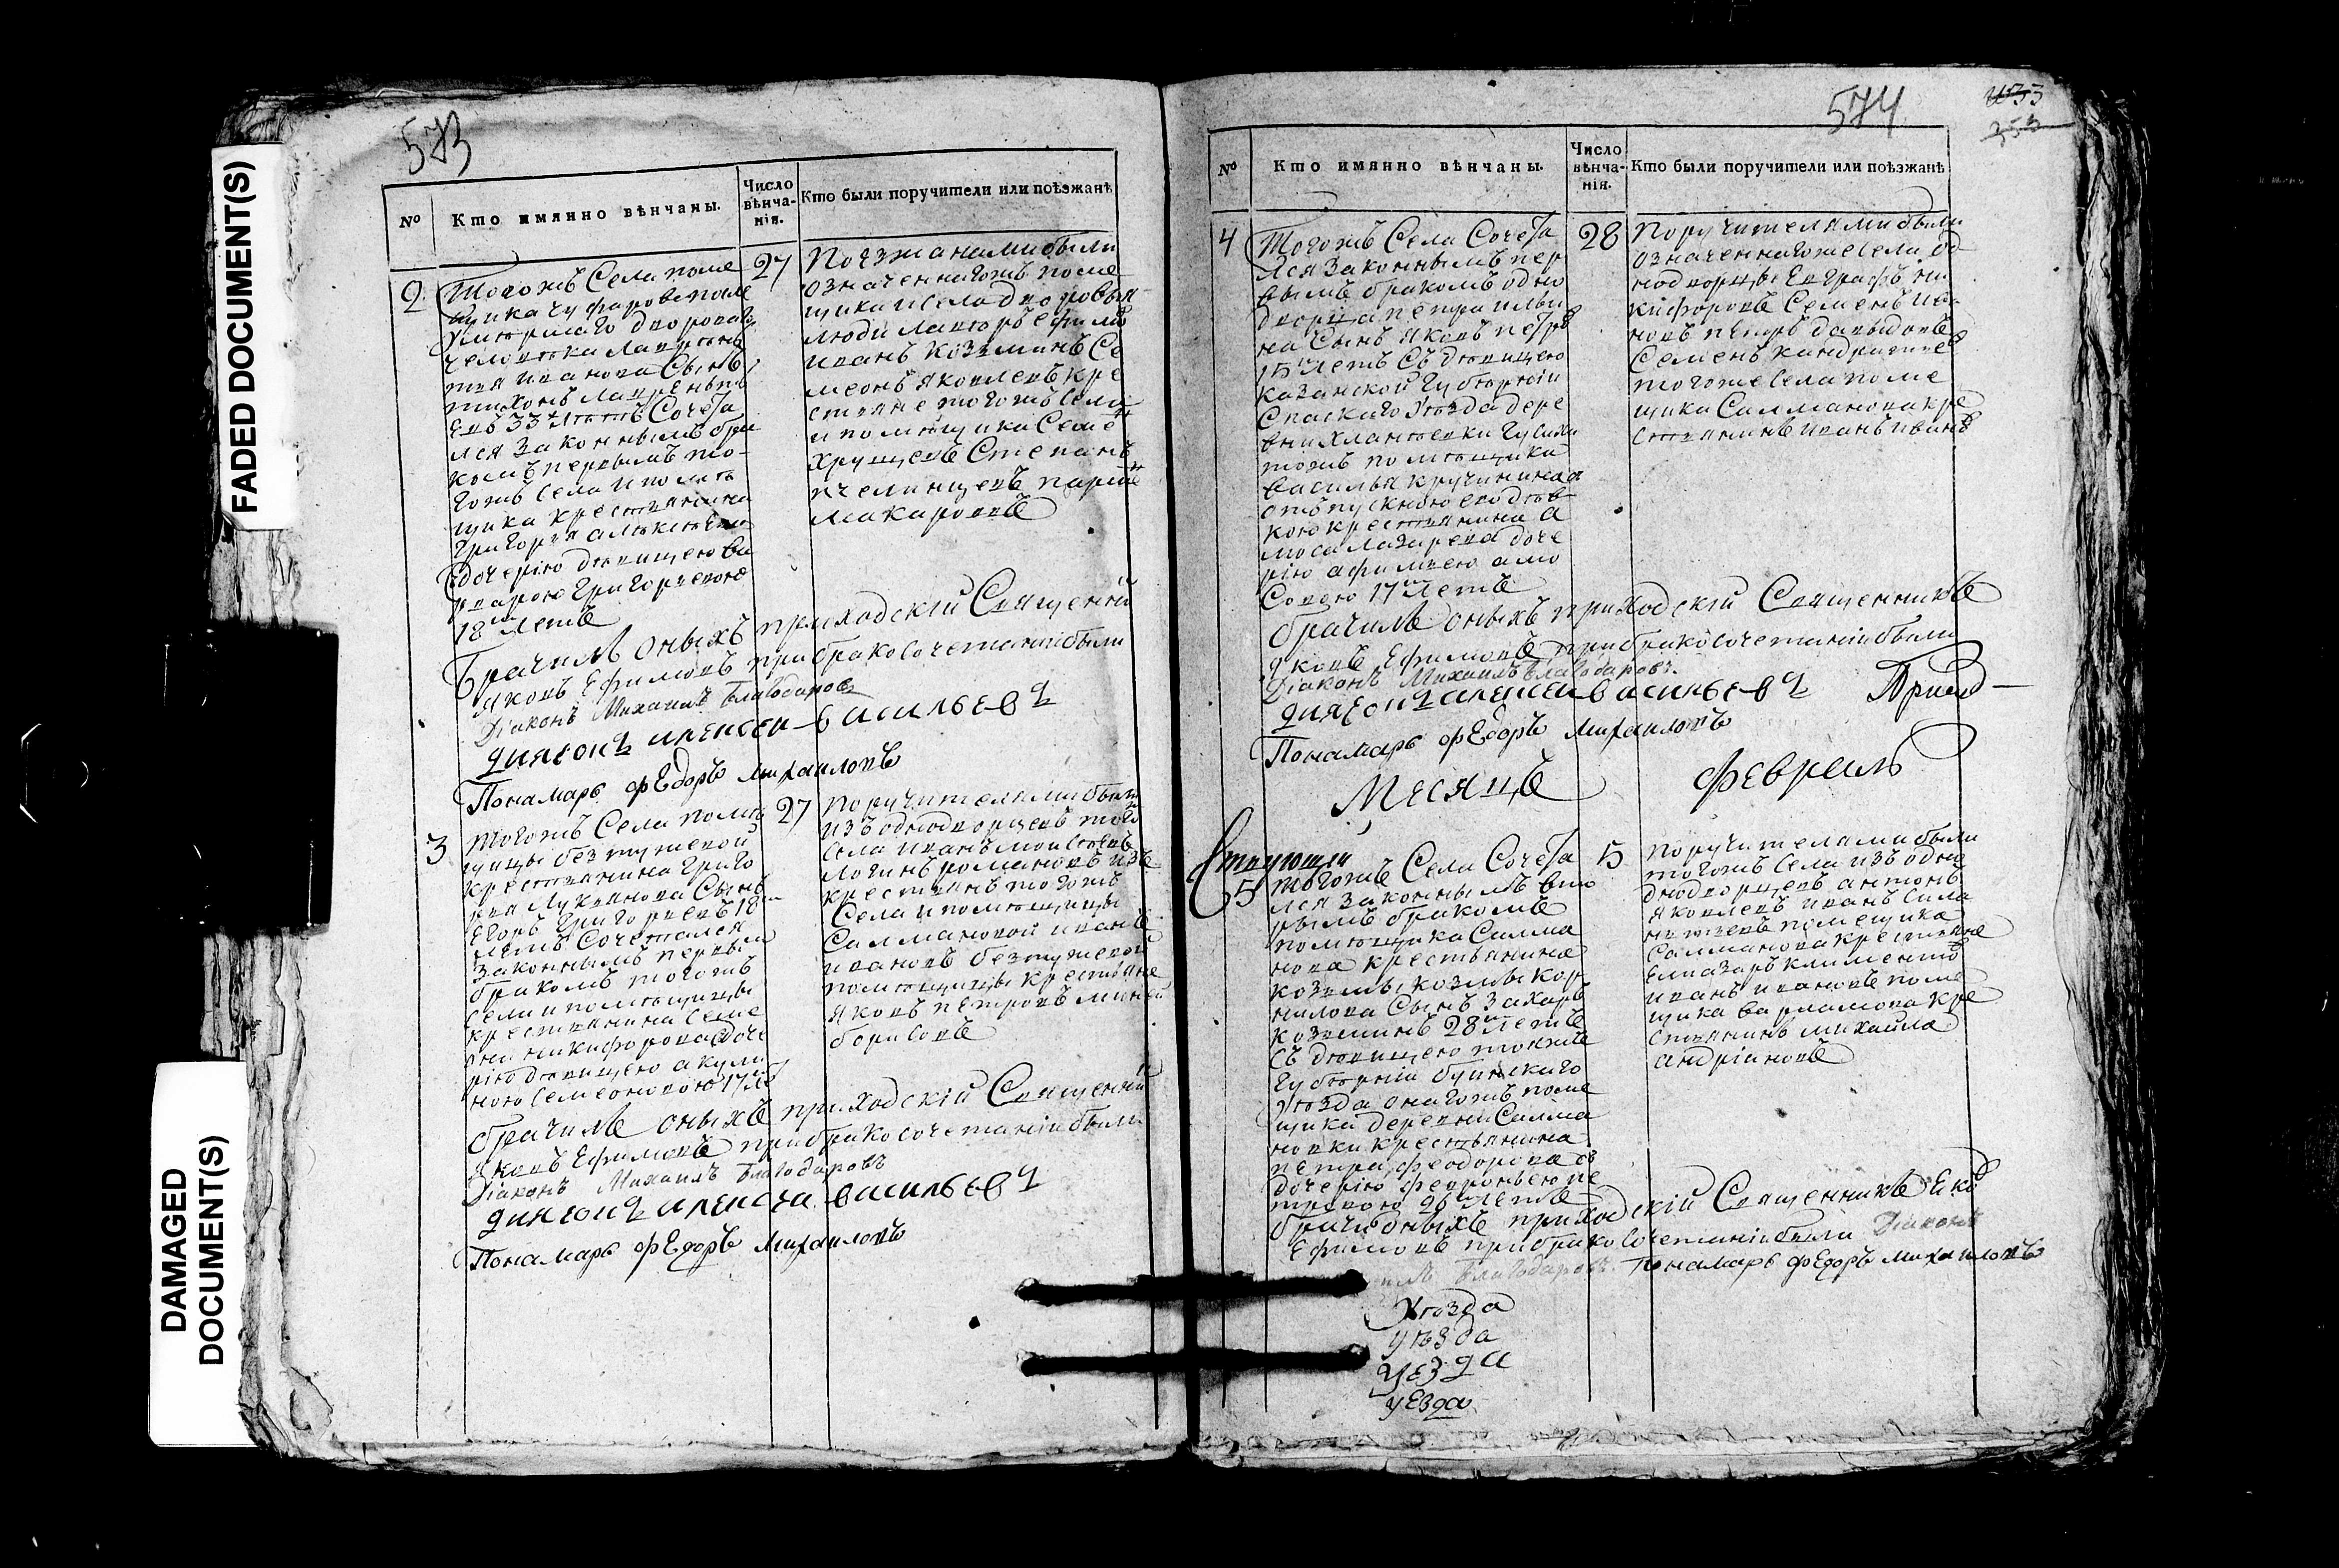 FADED DOCUMENT(S)
DAMAGED
DOCUMENT(S)
573
№
Кто имянно вѣнчаны.
Число
вѣнча-
нія.
Кто были поручители или поѣзжанѣ
2
Тогожъ Села поме
щика
умершаго двороваго
человека
Иванова Сынъ
тихонъ
33 Сочета
лся Законнымъ бра
комъ первымъ то-
гожъ Села и поме
щика крестьянина
Григорья алексеева
дочерію девицею ва
рварою Григорьевою
18 летъ
27
Поезжанами были
означеннагожъ поме
щика и Села дворовыя
люди
иванъ Козминъ Се
меонъ яковлевъ кре
стьяне тогожъ Села
и помещика
Хрущевъ Степанъ
пчелинцевъ
макаровъ
Брачилъ оныхъ приходскій Священникъ
яковъ Ефимовъ при бракосочетаніи были
Діаконъ Михаилъ Благодаровъ
диячокъ алексеи васильевъ
Понамарь фЕдоръ михаиловъ
3
тогожъ Села поме
щицы безтужевой
крестьянина Григо
рья Лукьянова Сынъ
Егоръ Григорьевъ 18
летъ Сочетался
Законнымъ первымъ
бракомъ тогожъ
Села и помещицы
крестьянина Семе
она никифорова доче
рію девицею акули
ною Семеоновою 17 ле
27
поручителями были
изъ однодворцевъ того
Села иванъ моисеевъ
логинъ романовъ изъ
крестьянъ тогожъ
Села и помещицы
Салмановой иванъ
ивановъ безтужевой
помещицы крестьяне
яковъ петровъ миней
борисовъ
брачилъ оныхъ приходскій Священникъ
яковъ Ефимовъ при бракосочетаніи были
Діаконъ Михаилъ Благодаровъ
диячокъ алексеи васильевъ
Понамарь фЕдоръ михаиловъ
574
№
Кто имянно вѣнчаны.
Число
вѣнча-
нія.
Кто были поручители или поѣзжанѣ
4
Тогожъ Села Сочета
лся Законнымъ пер
вымъ бракомъ одно
дворца петра
на Сынъ яковъ петро
15 летъ Съ девицею
казанской Губерніи
Спаскаго уезда дере
вни
тожъ помещика
василья кручинина
отъпускною его дев
кою крестьянина а
моса лазарева доче
рію афимьею амо
Совою 17 летъ
28
Поручителями были
означеннагоже Села од
нодворцы Евграфъ ни
кифоровъ Семенъ ива
новъ петръ давыдовъ
Семенъ кандратьев
тогоже Села поме
щика Салманова кре
стьянинъ иванъ иванъ
брачилъ оныхъ приходскій Священникъ
яковъ Ефимовъ при бракосочетаніи были
Діаконъ Михаилъ Благодаровъ.
диячокъ алексеи васильевъ
Понамарь фЕдоръ михаиловъ
Месяцъ Февраль
5
тогожъ Села Сочета
лся Законнымъ вто
рымъ бракомъ
помещика Салма
нова крестьянина
козьмы козмы кор
нилова Сынъ Захаръ
козминъ 28 летъ
Съ девицею тояжъ
Губерніи буинскаго
уезда онагожъ поме
щика деревни Салма
новки крестьянина
петра феодорова
дочерію февроньею пе
тровою 26 летъ
5
поручителями были
тогожъ Села изъ одно
днодворцевъ антонъ
яковлевъ иванъ Сила
помещика
Салманова крестьяне
Елиазаръ климентъ
иванъ ивановъ поме
щика варламова кре
стьянинъ михайла
андріановъ
брачилъ оныхъ приходскій Священникъ
Ефимовъ при бракосочетаніи были Діаконъ
Благодаровъ. Понамарь фЕдоръ михаиловъ
Уезда
уезда
уезда
уезда